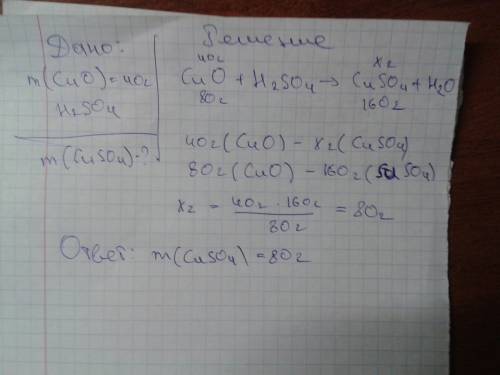 Дано:
m(CuO)=40г
H₂SO₄
m(CuSO₄)-?
Решение
40г xг
CuO + H₂SO₄ → CuSO₄ + H₂O
80г 160г
40г(CuO) – xг(CuSO₄)
80г(CuO) – 160г(CuSO₄)
xг = 40г · 160г / 80г = 80г
Ответ: m(CuSO₄) = 80г